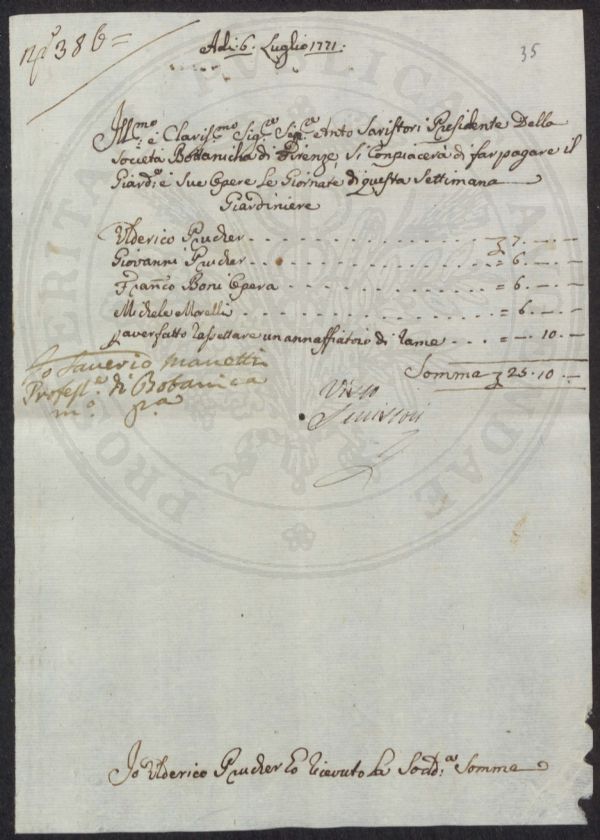 nº 386=
Adi: 6. Luglio 1771:
35
Jll.mo e Claris.mo Sig.re Sig.re Anto Saristori Presidente Della
Società Bottanicha di Firenze Si Conpiacerà di far pagare il
Giard.e e Sue Opere Le Giornate di questa Settimana
Giardiniere
Ulderico Prucher . . . . . . . . . . . . 7. — . —
Giovanni Prucher . . . . . . . . . . . = 6. — . —
Fran.co Boni Opera . . . . . . . . . . = 6. — . —
Michele Morelli . . . . . . . . . . . . = 6. — . —
p aver fatto rassettare un annaffiatoio di rame . . . = — . 10. —
Somma 25. 10. —
Jo Saverio Manetti
Profess.e di Botanica
m.o p.a
Visto
PROSPERITATI PVBLICAE AVGENDAE
Jo Ulderico Prucher ho ricevuto la Sodd.a Somma